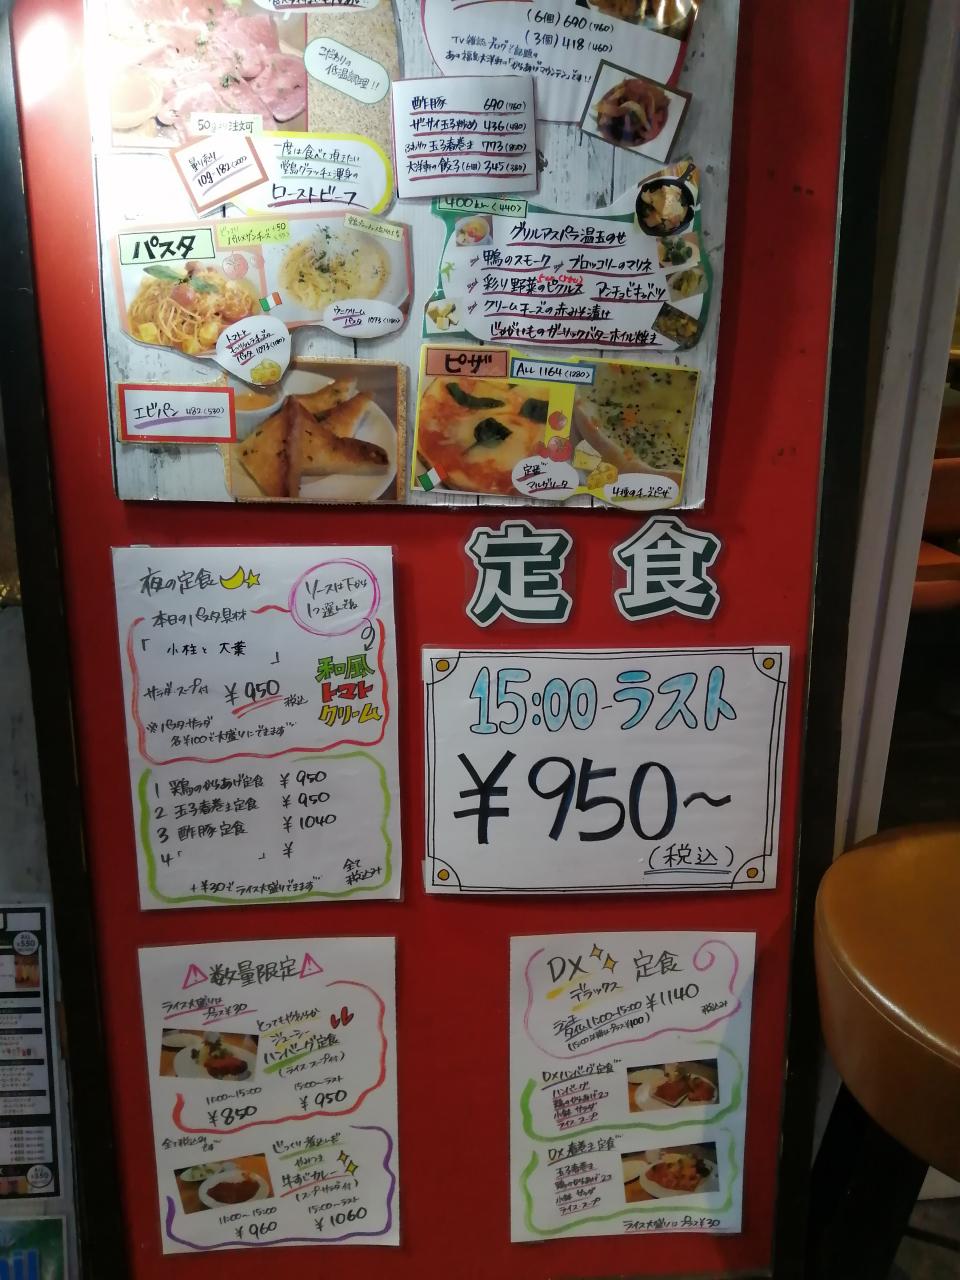 (6個) 690 (760)
(3個) 418 (460)
TV 雑誌 ブログで話題の
あの福島大洋軒の「からあげマウンテン」です!!
こだわりの
低温調理!!
酢豚 690 (760)
ザーサイ玉子炒め 436 (480)
玉子春巻き 773 (850)
大洋軒の餃子(6個) 345 (380)
50g
注文可
量り売り
10g-182(200)
一度は食べて頂きたい
ローストビーフ
パスタ
パルメザンチーズ +50
トマト
パスタ 1073 (1180)
ウニクリーム
パスタ 1073 (1180)
400 ALL (440)
グリルアスパラ温玉のせ
鴨のスモーク
ブロッコリーのマリネ
彩り野菜のピクルス
アンチョビキャベツ
クリームチーズの赤みそ漬け
じゃがいものガーリックバターホイル焼き
エビパン 482 (530)
ピザ
ALL 1164 (1280)
定番
マルゲリータ
4種のチーズピザ
定食
夜の定食
ソースは下から
1つ選んでね
本日のパスタ具材
「小柱と大葉」
サラダ・スープ付 ¥950 税込
和風
トマト
クリーム
※パスタ・サラダ
各¥100で大盛りにできます
1 若鶏のからあげ定食 ¥950
2 玉子春巻き定食 ¥950
3 酢豚定食 ¥1040
4「 」 ¥
+¥30でライス大盛りできます
全て
税込み
15:00-ラスト
¥950~
(税込)
数量限定
ライス大盛りは
プラス¥30
とってもやわらか
ジューシー
ハンバーグ定食
(ライス スープ付)
11:00~15:00
¥850
15:00~ラスト
¥950
全て税込み
です
じっくり煮込んだ
やみつき
牛すじカレー
(スープ サラダ付)
11:00~15:00
¥960
15:00~ラスト
¥1060
DX 定食
デラックス
タイム11:00~15:00 ¥1140
税込み
(15:00以降はプラス¥100)
DXハンバーグ定食
ハンバーグ
鶏のからあげ2コ
小鉢 サラダ
ライス スープ
DX春巻き定食
玉子春巻き
鶏のからあげ2コ
小鉢 サラダ
ライス スープ
ライス大盛りはプラス¥30